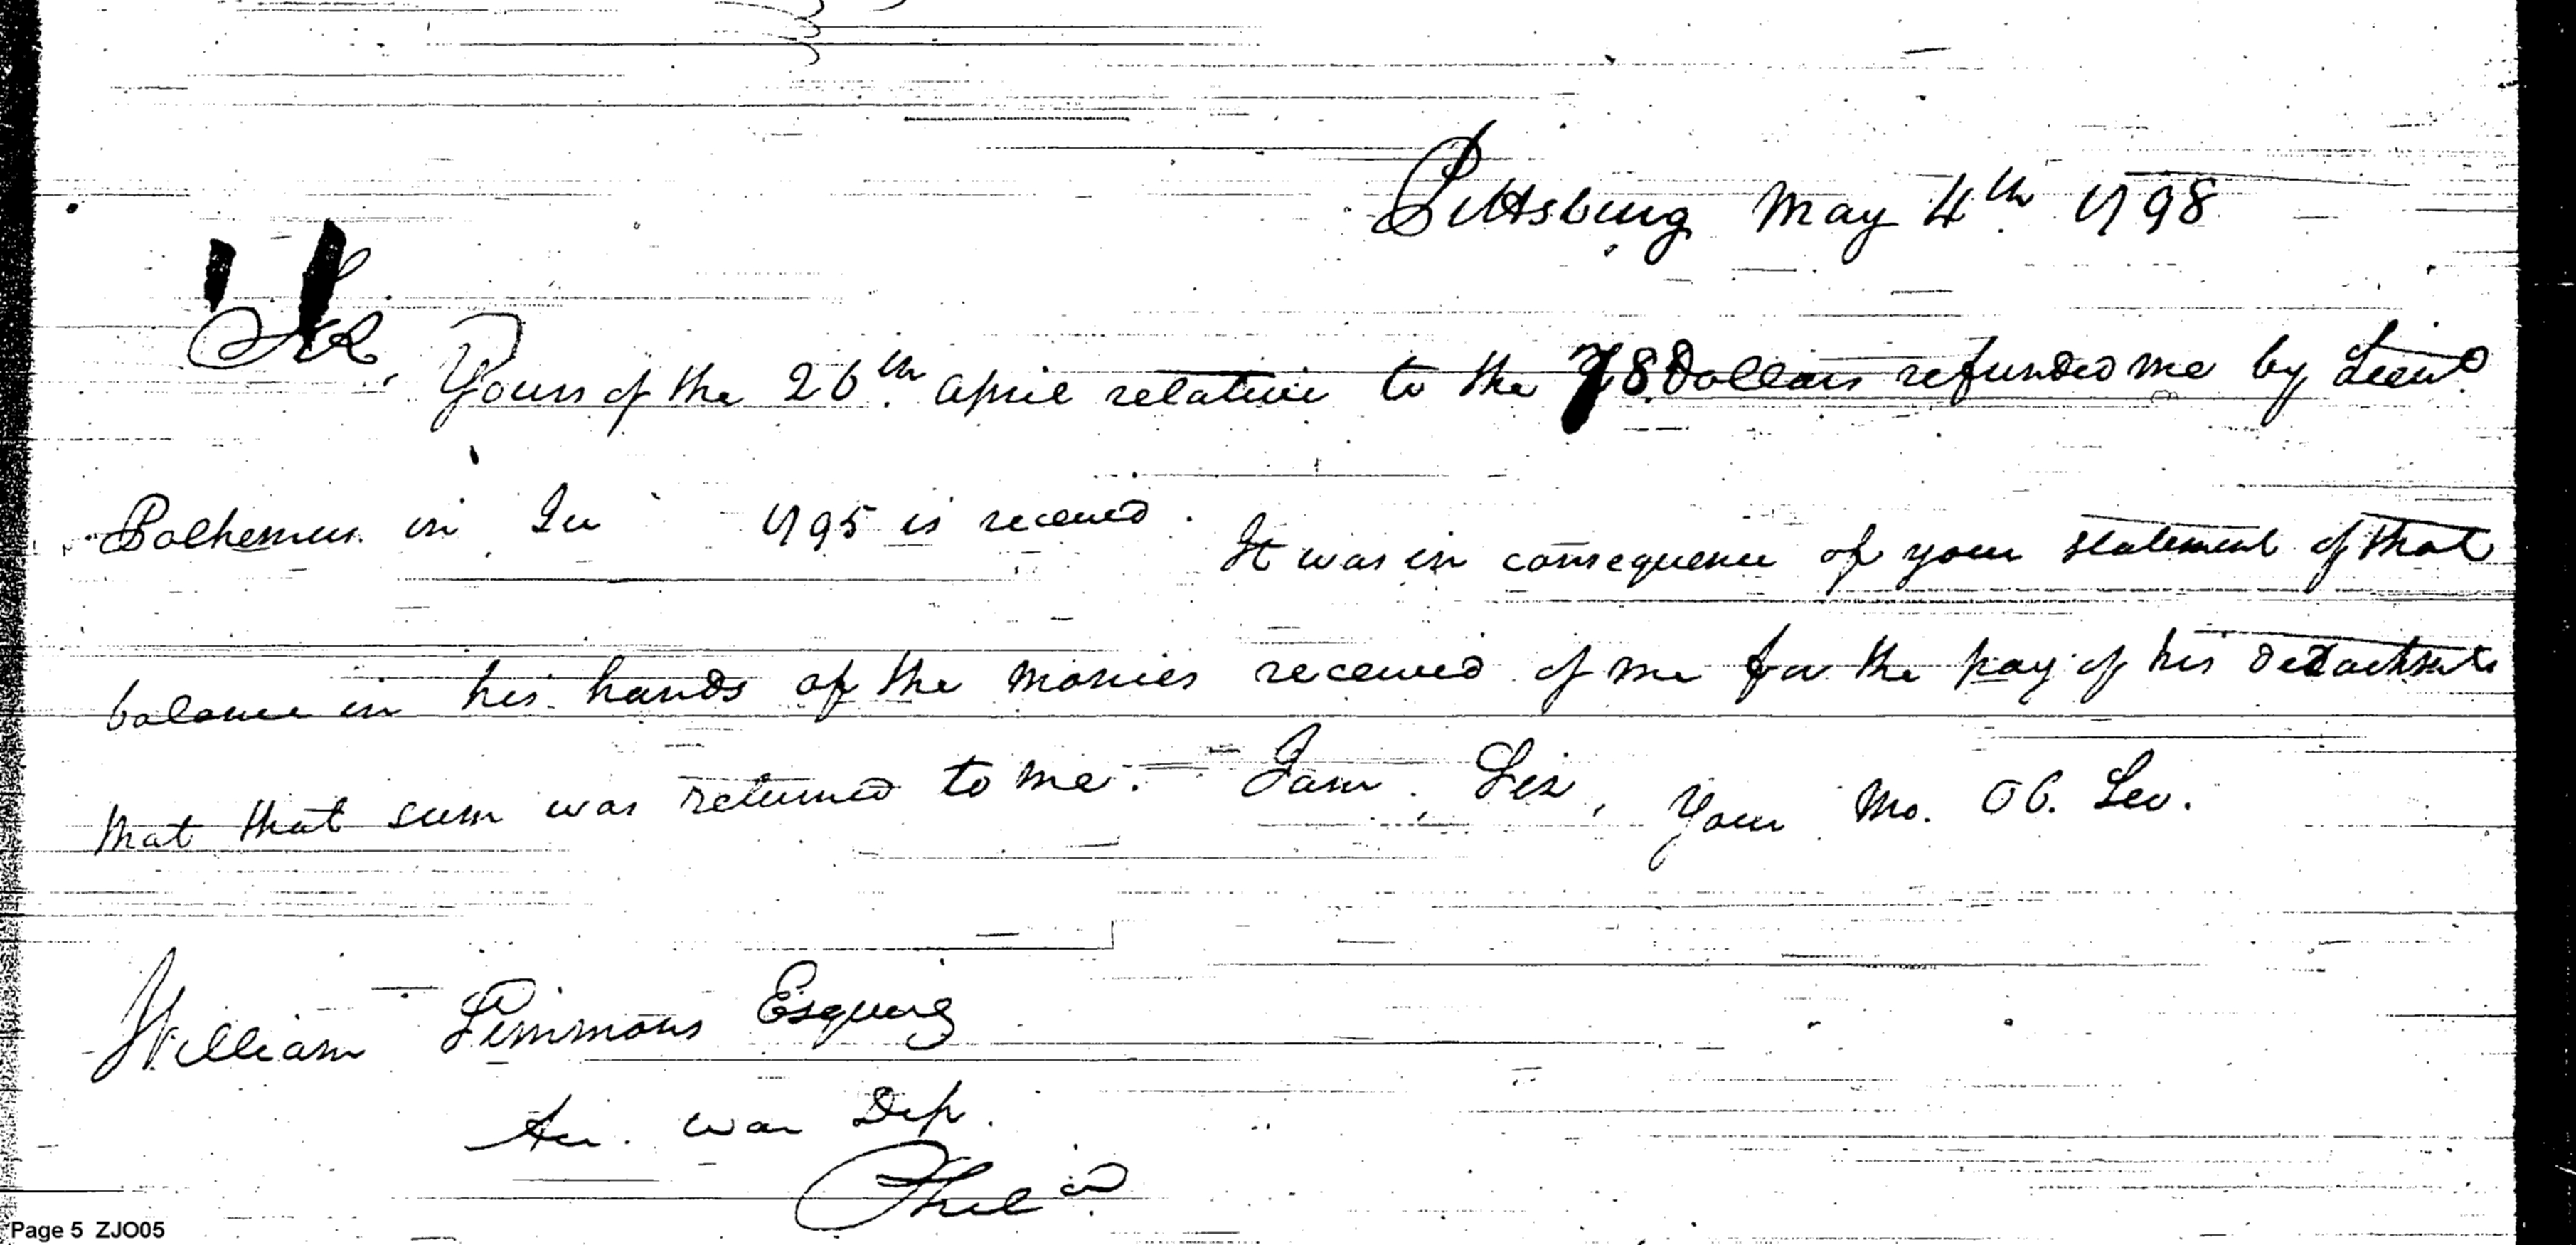 Pittsburg May 4th 1798
Sir,
Yours of the 26th april relative to the 78 Dollars refunded me by Lieut
Polhemus in 1795 is received. It was in consequence of your statement of that
balance in his hands of the monies received of me for the pay of his
that that sum was returned to me. I am, Sir, Your Mo. Ob. Sev.
William Simmons Esquire
Acc. War Dep.
Phila
Page 5 ZJO05